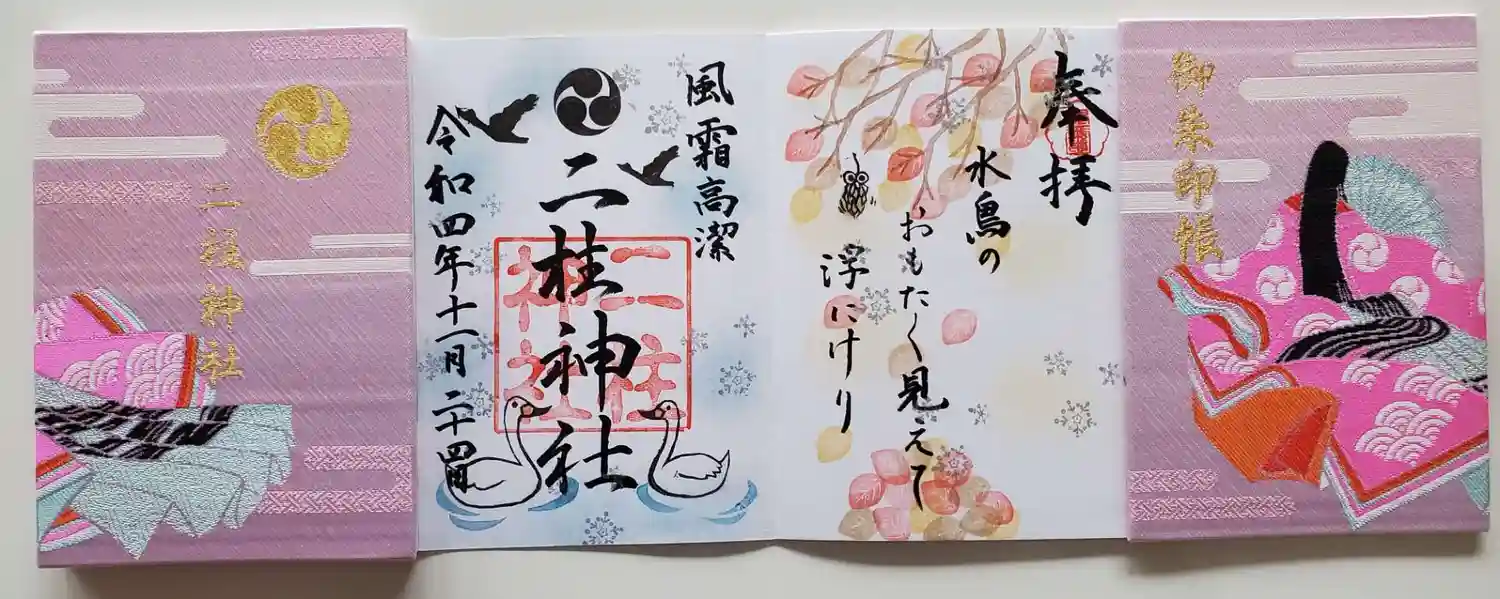 御朱印帳
奉拝
水鳥の
おもたく見えて
浮にけり
風霜高潔
二柱神社
二柱
神社
令和四年十一月二十四日
二柱神社